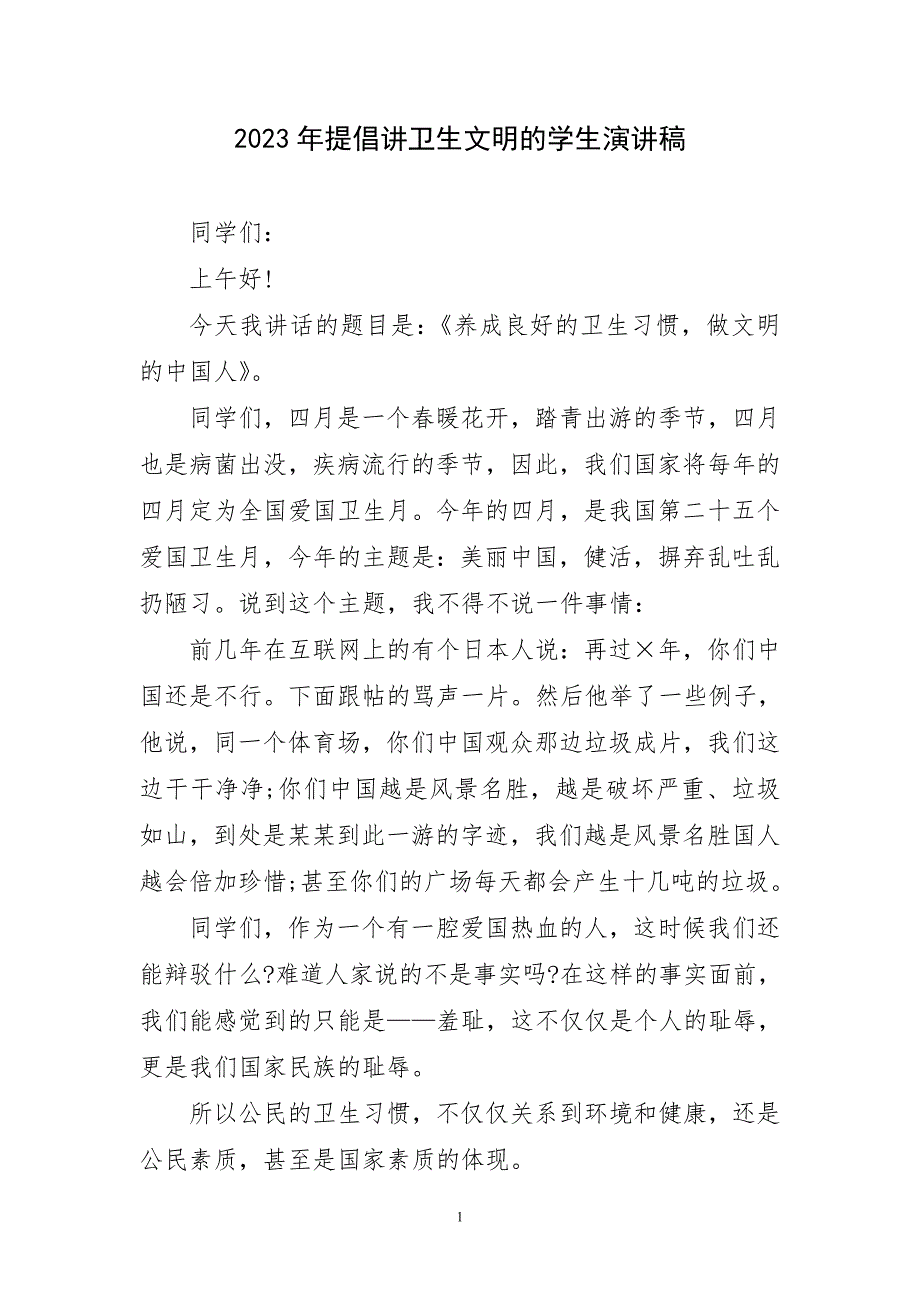 2023年提倡讲卫生文明的学生演讲稿
同学们：
上午好！
今天我讲话的题目是：《养成良好的卫生习惯，做文明
的中国人》。
同学们，四月是一个春暖花开，踏青出游的季节，四月
也是病菌出没，疾病流行的季节，因此，我们国家将每年的
四月定为全国爱国卫生月。今年的四月，是我国第二十五个
爱国卫生月，今年的主题是：美丽中国，健活，摒弃乱吐乱
扔陋习。说到这个主题，我不得不说一件事情：
前几年在互联网上的有个日本人说：再过×年，你们中
国还是不行。下面跟帖的骂声一片。然后他举了一些例子，
他说，同一个体育场，你们中国观众那边垃圾成片，我们这
边干干净净;你们中国越是风景名胜，越是破坏严重、垃圾
如山，到处是某某到此一游的字迹，我们越是风景名胜国人
越会倍加珍惜;甚至你们的广场每天都会产生十几吨的垃圾。
同学们，作为一个有一腔爱国热血的人，这时候我们还
能辩驳什么?难道人家说的不是事实吗?在这样的事实面前，
我们能感觉到的只能是——羞耻，这不仅仅是个人的耻辱，
更是我们国家民族的耻辱。
所以公民的卫生习惯，不仅仅关系到环境和健康，还是
公民素质，甚至是国家素质的体现。
1